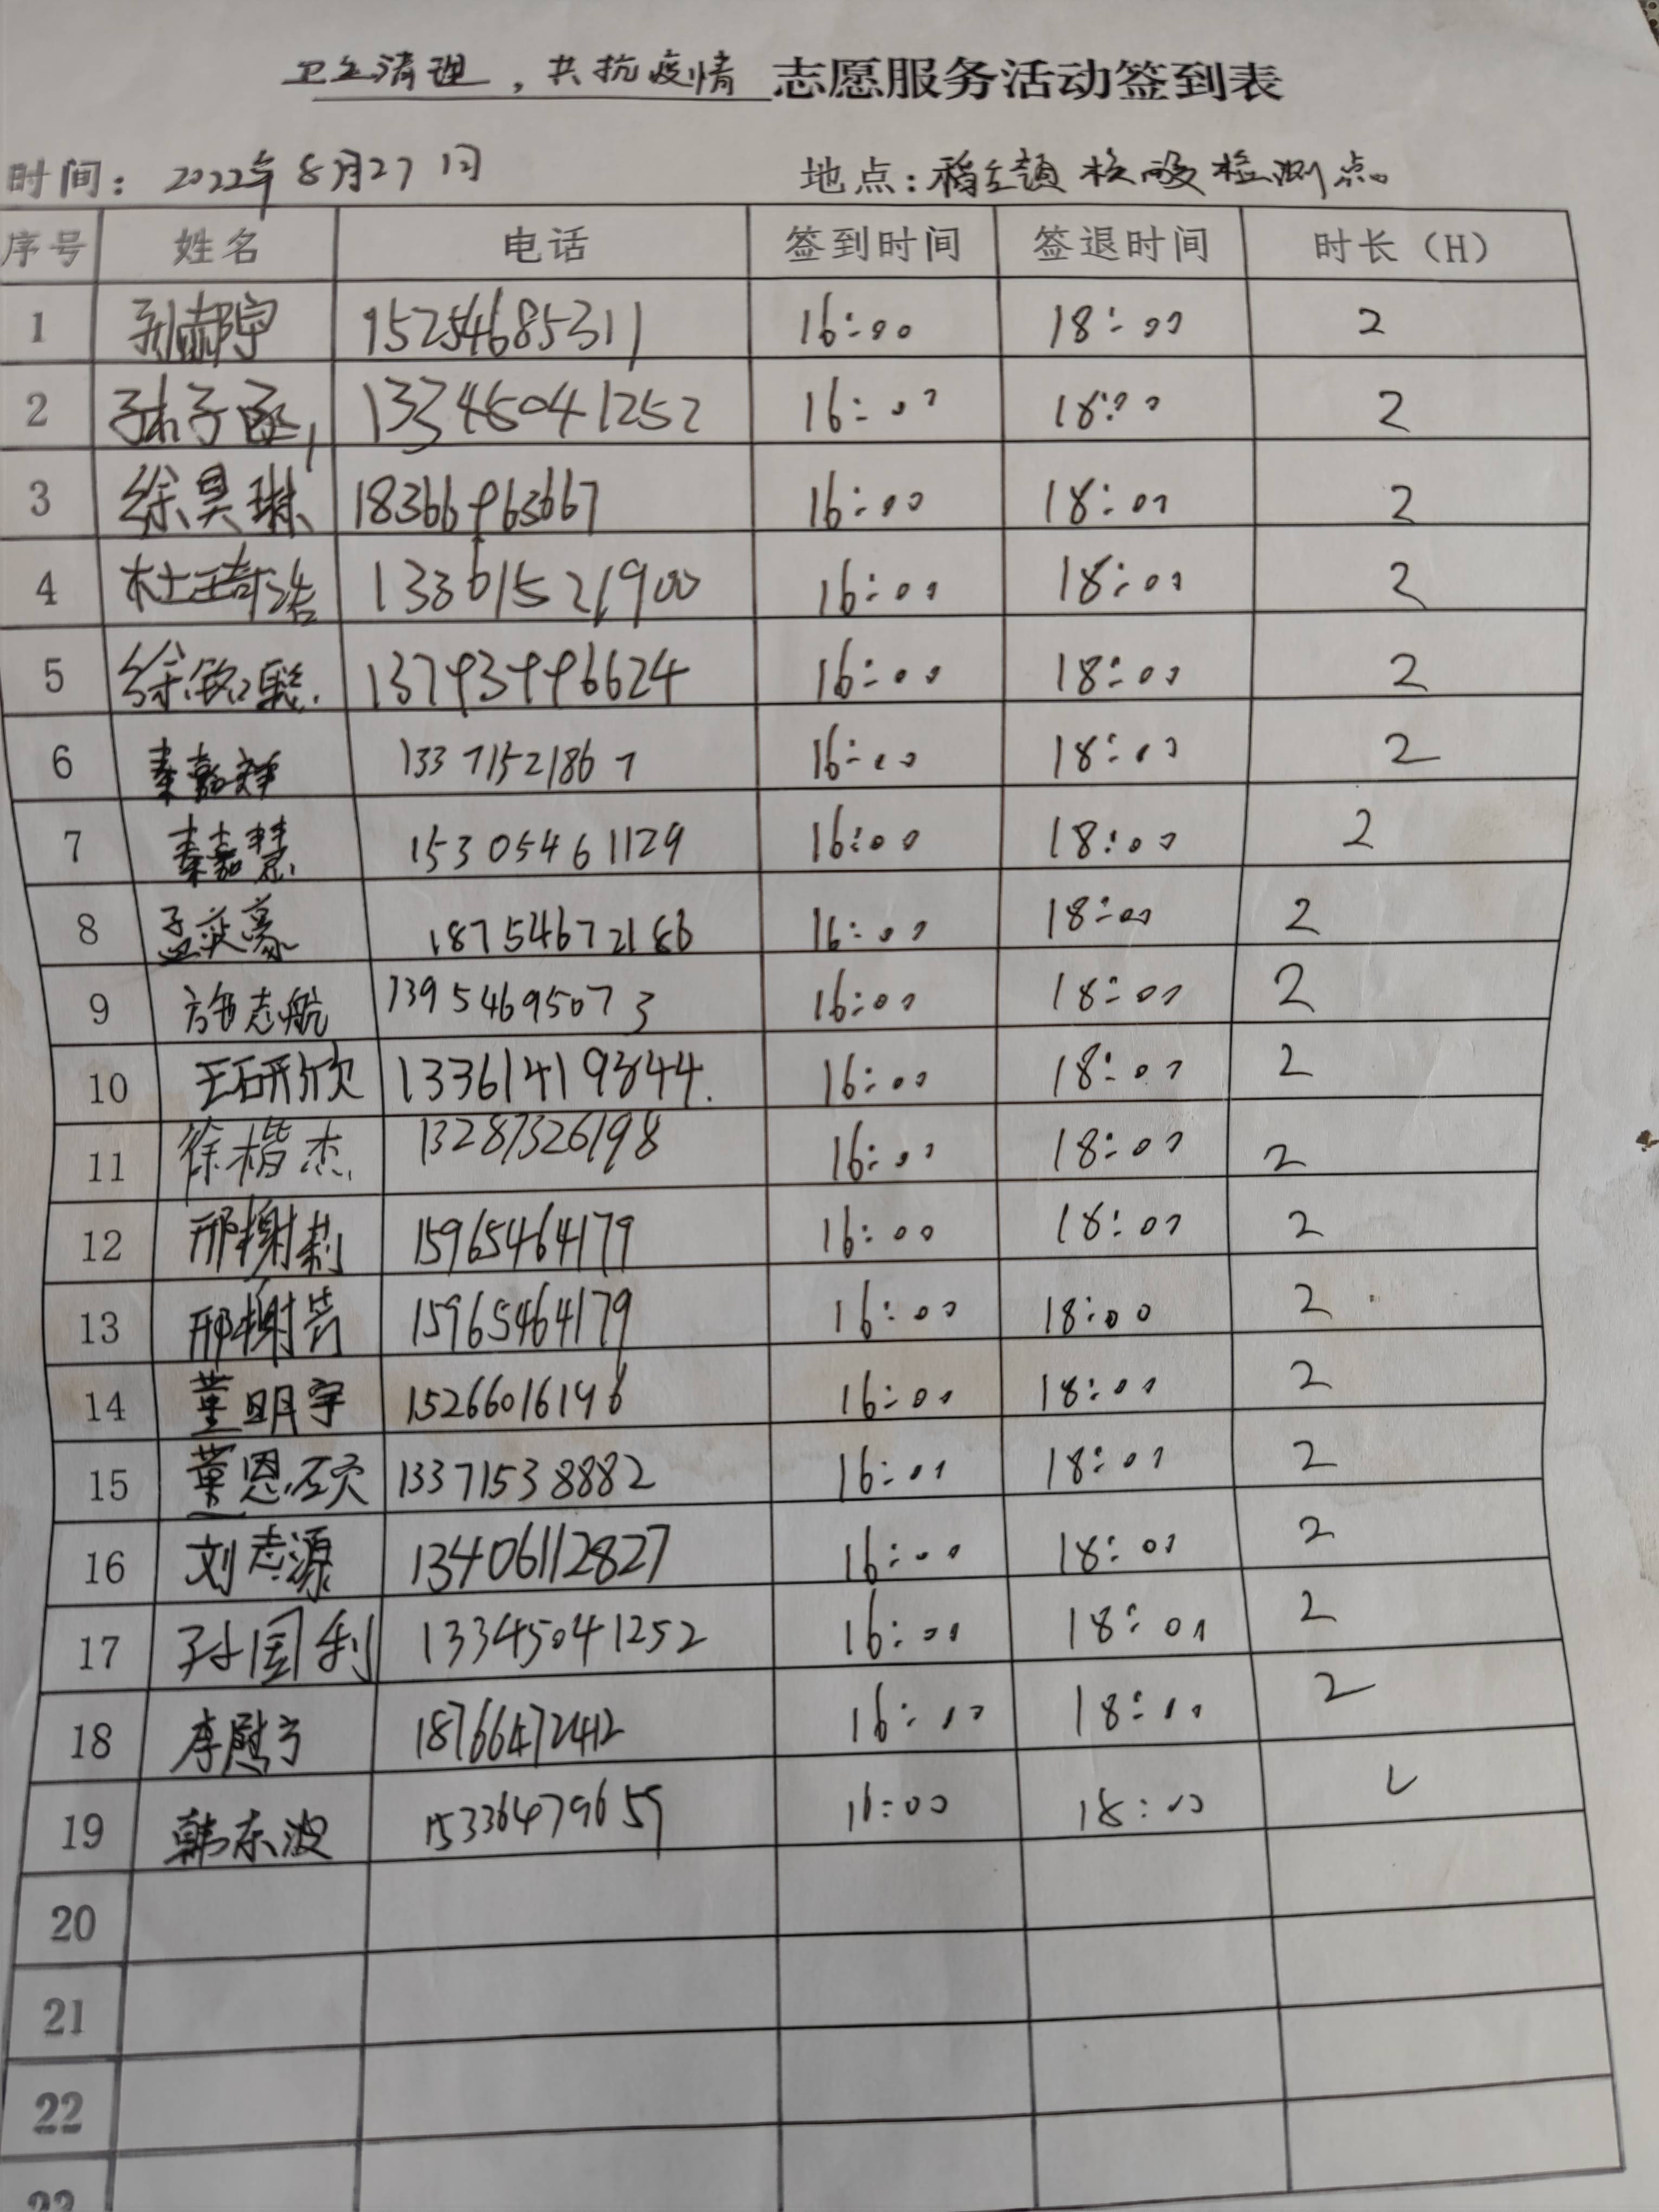 卫生清理，共抗疫情 志愿服务活动签到表
时间：2022年8月27日 地点：稻庄镇核酸检测点
序号 姓名 电话 签到时间 签退时间 时长（H）
1 孙郝宇 15254685311 16:00 18:00 2
2 孙子涵 13345041252 16:00 18:00 2
3 徐昊琳 18366963667 16:00 18:00 2
4 杜琦浩 13361521900 16:00 18:00 2
5 徐铭聪 13793996624 16:00 18:00 2
6 秦懿祥 13371521867 16:00 18:00 2
7 秦嘉慧 15305461129 16:00 18:00 2
8 孟奕豪 18754672186 16:00 18:00 2
9 施志航 13954695073 16:00 18:00 2
10 王研欣 133614193844. 16:00 18:00 2
11 徐楷杰 13287326198 16:00 18:00 2
12 邢榭莉 15965464179 16:00 18:00 2
13 邢榭芳 15965464179 16:00 18:00 2
14 董明宇 15266016196 16:00 18:00 2
15 董恩硕 13371538882 16:00 18:00 2
16 刘志源 13406112827 16:00 18:00 2
17 孙国利 13345041252 16:00 18:00 2
18 李 18766472412 16:00 18:00 2
19 韩东波 15336479659 16:00 18:00 2
20
21
22
23